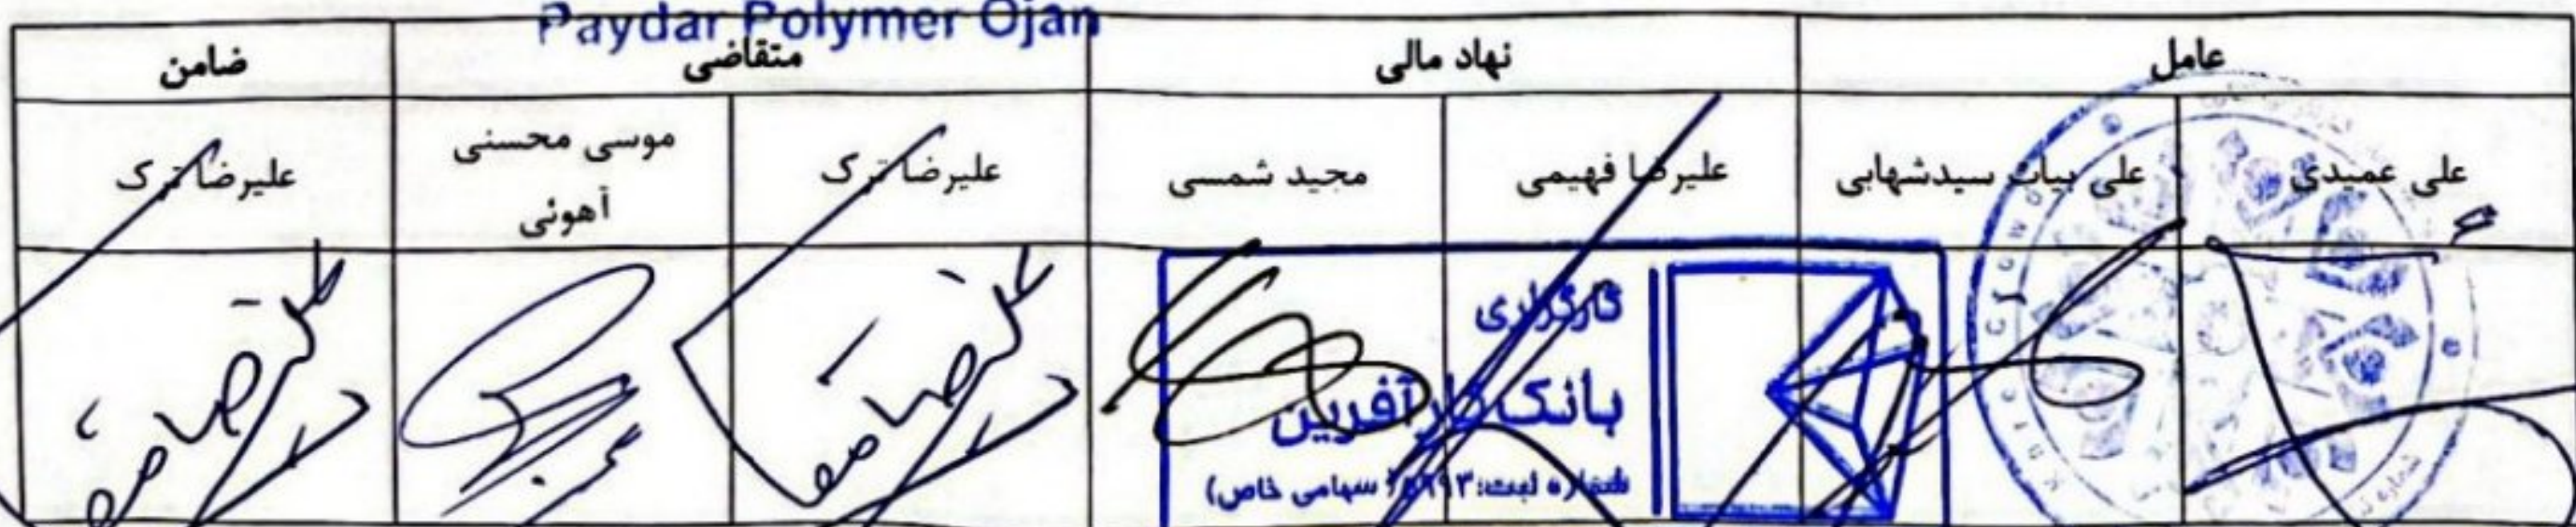 Paydar Polymer Ojan
عامل
نهاد مالی
متقاضی
ضامن
علی عمیدی
علی بیات سیدشهابی
علیرضا فهیمی
مجید شمسی
علیرضا ترک
موسی محسنی
آهوئی
علیرضا ترک
کارگزاری
بانک کارآفرین
شماره ثبت: (سهامی خاص)